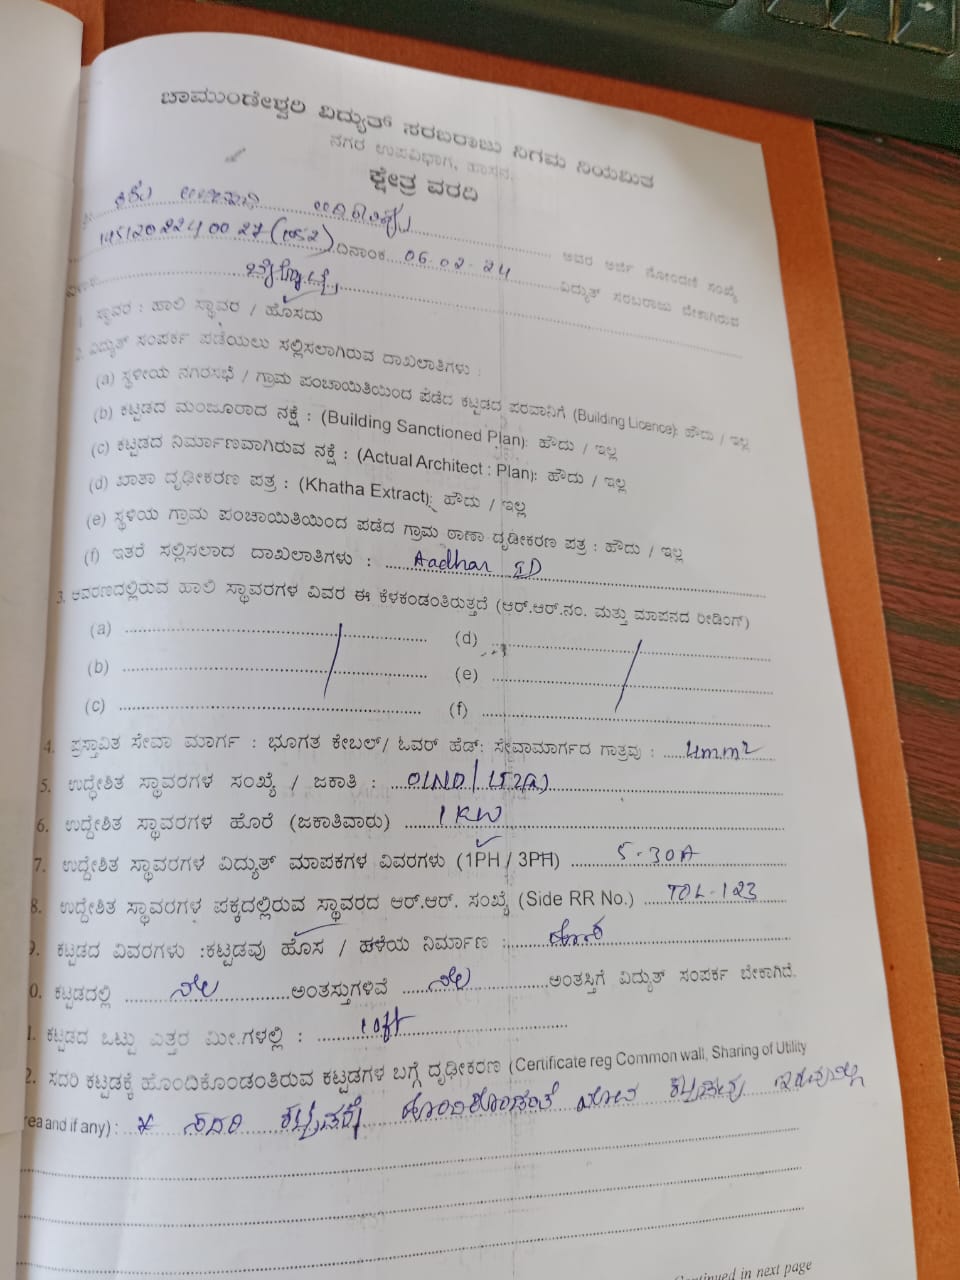 ಚಾಮುಂಡೇಶ್ವರಿ ವಿದ್ಯುತ್ ಸರಬರಾಜು ನಿಗಮ ನಿಯಮಿತ
ನಗರ ಉಪವಿಭಾಗ, ಹಾಸನ.
ಕ್ಷೇತ್ರ ವರದಿ
ಅವರ ಅರ್ಜಿ ನೋಂದಣಿ ಸಂಖ್ಯೆ
ದಿನಾಂಕ 06.02.24 ವಿದ್ಯುತ್ ಸರಬರಾಜು ಬೇಕಾಗಿರುವ
1. ಸ್ಥಾವರ : ಹಾಲಿ ಸ್ಥಾವರ / ಹೊಸದು
2. ವಿದ್ಯುತ್ ಸಂಪರ್ಕ ಪಡೆಯಲು ಸಲ್ಲಿಸಲಾಗಿರುವ ದಾಖಲಾತಿಗಳು :
(a) ಸ್ಥಳೀಯ ನಗರಸಭೆ / ಗ್ರಾಮ ಪಂಚಾಯಿತಿಯಿಂದ ಪಡೆದ ಕಟ್ಟಡದ ಪರವಾನಿಗೆ (Building Licence): ಹೌದು / ಇಲ್ಲ
(b) ಕಟ್ಟಡದ ಮಂಜೂರಾದ ನಕ್ಷೆ : (Building Sanctioned Plan): ಹೌದು / ಇಲ್ಲ
(c) ಕಟ್ಟಡದ ನಿರ್ಮಾಣವಾಗಿರುವ ನಕ್ಷೆ : (Actual Architect : Plan): ಹೌದು / ಇಲ್ಲ
(d) ಖಾತಾ ದೃಢೀಕರಣ ಪತ್ರ : (Khatha Extract): ಹೌದು / ಇಲ್ಲ
(e) ಸ್ಥಳಿಯ ಗ್ರಾಮ ಪಂಚಾಯಿತಿಯಿಂದ ಪಡೆದ ಗ್ರಾಮ ಠಾಣಾ ದೃಡೀಕರಣ ಪತ್ರ : ಹೌದು / ಇಲ್ಲ
(f) ಇತರೆ ಸಲ್ಲಿಸಲಾದ ದಾಖಲಾತಿಗಳು : Aadhar ID
3. ಆವರಣದಲ್ಲಿರುವ ಹಾಲಿ ಸ್ಥಾವರಗಳ ವಿವರ ಈ ಕೆಳಕಂಡಂತಿರುತ್ತದೆ (ಆರ್.ಆರ್.ನಂ. ಮತ್ತು ಮಾಪನದ ರೀಡಿಂಗ್)
(a) (d)
(b) (e)
(c) (f)
4. ಪ್ರಸ್ತಾವಿತ ಸೇವಾ ಮಾರ್ಗ : ಭೂಗತ ಕೇಬಲ್/ ಓವರ್ ಹೆಡ್: ಸೇವಾಮಾರ್ಗದ ಗಾತ್ರವು : 4mm2
5. ಉದ್ದೇಶಿತ ಸ್ಥಾವರಗಳ ಸಂಖ್ಯೆ / ಜಕಾತಿ :
6. ಉದ್ದೇಶಿತ ಸ್ಥಾವರಗಳ ಹೊರೆ (ಜಕಾತಿವಾರು) 1 KW
7. ಉದ್ದೇಶಿತ ಸ್ಥಾವರಗಳ ವಿದ್ಯುತ್ ಮಾಪಕಗಳ ವಿವರಗಳು (1PH / 3PH) 5-30A
8. ಉದ್ದೇಶಿತ ಸ್ಥಾವರಗಳ ಪಕ್ಕದಲ್ಲಿರುವ ಸ್ಥಾವರದ ಆರ್.ಆರ್. ಸಂಖ್ಯೆ (Side RR No.) TOL-123
9. ಕಟ್ಟಡದ ವಿವರಗಳು :ಕಟ್ಟಡವು ಹೊಸ / ಹಳೆಯ ನಿರ್ಮಾಣ : ಹೊಸ
0. ಕಟ್ಟಡದಲ್ಲಿ ನೆಲ ಅಂತಸ್ತುಗಳಿವೆ ನೆಲ ಅಂತಸ್ತಿಗೆ ವಿದ್ಯುತ್ ಸಂಪರ್ಕ ಬೇಕಾಗಿದೆ.
1. ಕಟ್ಟಡದ ಒಟ್ಟು ಎತ್ತರ ಮೀ.ಗಳಲ್ಲಿ : 10ft
2. ಸದರಿ ಕಟ್ಟಡಕ್ಕೆ ಹೊಂದಿಕೊಂಡಂತಿರುವ ಕಟ್ಟಡಗಳ ಬಗ್ಗೆ ದೃಢೀಕರಣ (Certificate reg Common wall, Sharing of Utility
rea and if any) : ಸದರಿ ಕಟ್ಟಡಕ್ಕೆ ಹೊಂದಿಕೊಂಡಂತೆ ಯಾವ ಕಟ್ಟಡವೂ ಇರುವುದಿಲ್ಲ
Continued in next page